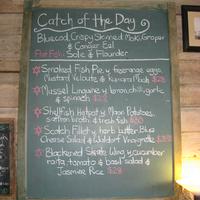 Catch of the Day
Bluecod, Crispy Skinned Moki, Groper
& Conger Eel
Flat Fish: Sole & Flounder
Smoked Fish Pie, free range eggs,
Mustard Veloute & Kumara Mash $28
Mussel Linguine w lemon, chilli, garlic
& spinach $25
Shellfish Hotpot w Maori Potatoes,
saffron broth & fresh fish $30
Scotch Fillet w herb butter, Blue
Cheese Salad & Waldorf Vinaigrette
Blackened Skate Wing w cucumber
raita, tomato & basil salad &
Jasmine Rice $28